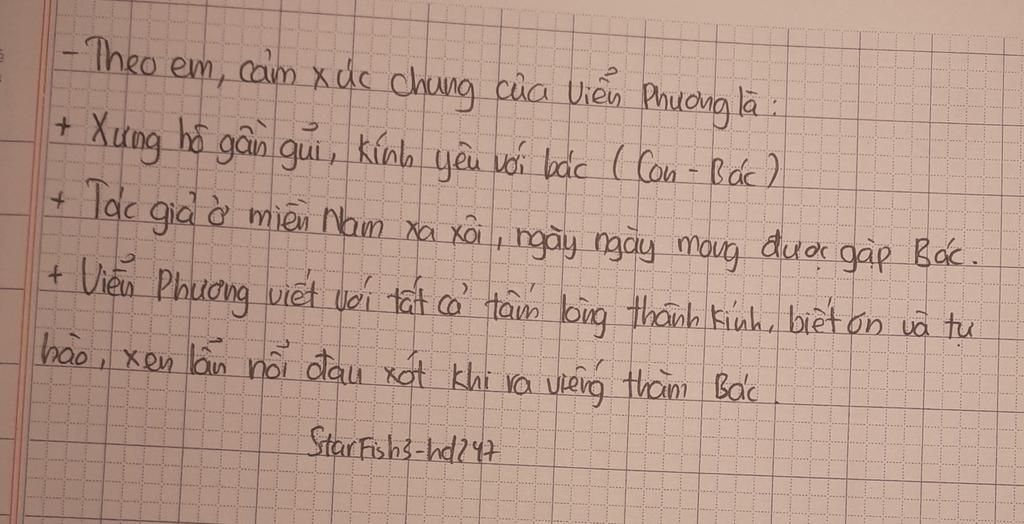 - Theo em, cảm xúc chung của Viễn Phương là:
+ Xưng hô gần gũi, kính yêu với bác (Con - Bác)
+ Tác giả ở miền Nam xa xôi, ngày ngày mong được gặp Bác.
+ Viễn Phương viết với tất cả tấm lòng thành kính, biết ơn và tự
hào, xen lẫn nỗi đau xót khi ra viếng thăm Bác
StarFish3-hd247